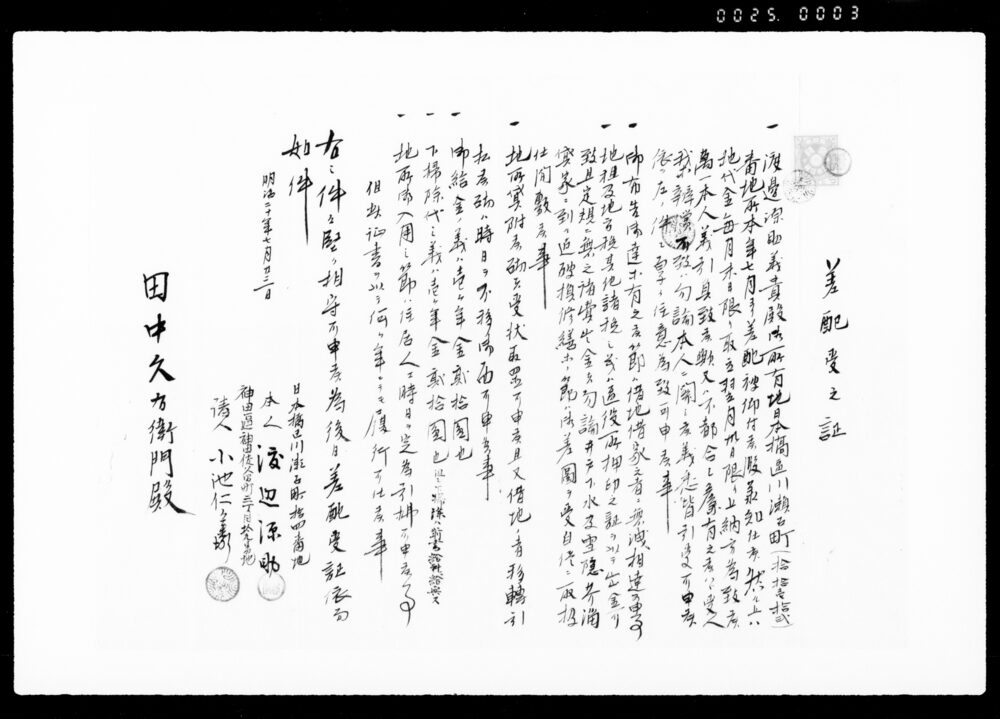 0025.0003
差配受之証
一 渡邉源助義貴殿御所有地日本橋區川瀬石町
番地所本年七月ゟ差配被仰付候段承知仕候然ル上ハ
地代金毎月末日限リ取立翌月 日限リ上納方為致候
萬一本人義引負致候歟又ハ不都合之廉有之候ハヽ受人
我等辨償可致ハ勿論本人ニ関シ候義悉皆引受可申候
依テ左ノ件々堅ク注意為致可申候事
一 御布告御達等有之候節ハ借地借家之者ニ無洩相達可申事
一 地租及地方税其他諸税 区役所押印之証ヲ以テ出金
致且定規ニ無之諸費出金ハ勿論井戸下水及雪隠芥溜
貸家ニ到ル迄破損修繕等ノ節ハ御差圖ヲ受自侭ニ取扱
仕間敷候事
一 地所貸附候砌ハ受状取置可申候且又借地ノ者移轉引
払候砌ハ時日ヲ不移御届可申候事
一 御給金ノ義ハ壱ヶ年金貳拾圓也
一 下掃除代之義ハ壱ヶ年金貳拾圓也
一 地所御入用之節ハ住居人エ時日ヲ定為引拂可申候事
但此証書ヲ以テ何ヶ年ニテモ履行可仕候事
右之件々堅ク相守可申候為後日差配受証依而
如件
明治二十年七月 日
日本橋区川瀬石町拾四番地
本人 渡辺源助
神田區神田佐久間町三丁目 番地
請人 小池仁
田中久右衛門殿